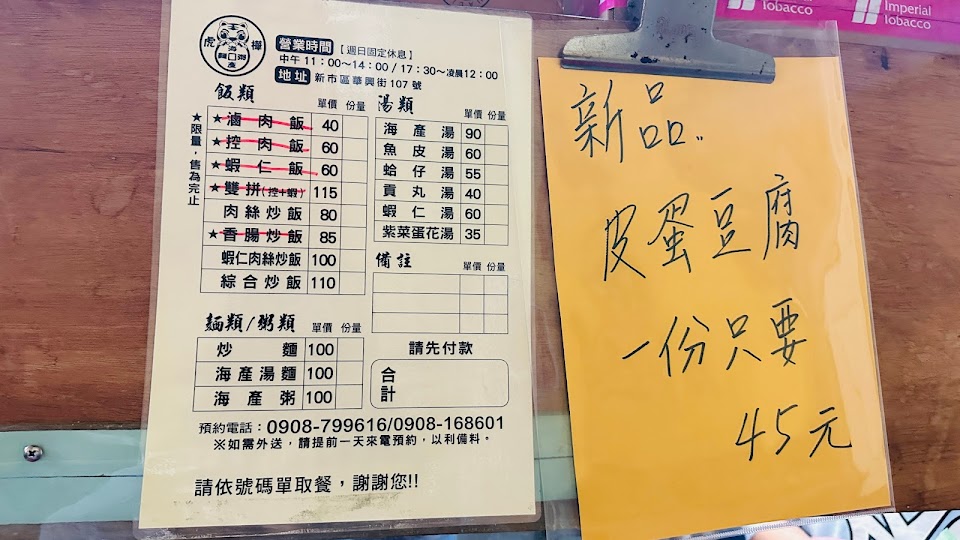 虎 樺
營業時間【週日固定休息】
中午 11：00～14：00 / 17：30～凌晨12：00
地址 新市區華興街 107 號
飯類 單價 份量
★限量，售為完止
★滷肉飯 40
★控肉飯 60
★蝦仁飯 60
★雙拼(控+蝦) 115
肉絲炒飯 80
★香腸炒飯 85
蝦仁肉絲炒飯 100
綜合炒飯 110
麵類/粥類 單價 份量
炒麵 100
海產湯麵 100
海產粥 100
湯類 單價 份量
海產湯 90
魚皮湯 60
蛤仔湯 55
貢丸湯 40
蝦仁湯 60
紫菜蛋花湯 35
備註 單價 份量
請先付款
合計
預約電話：0908-799616/0908-168601
※如需外送，請提前一天來電預約，以利備料。
請依號碼單取餐，謝謝您!!
新品..
皮蛋豆腐
一份只要
45元
Tobacco
Imperial
Tobacco